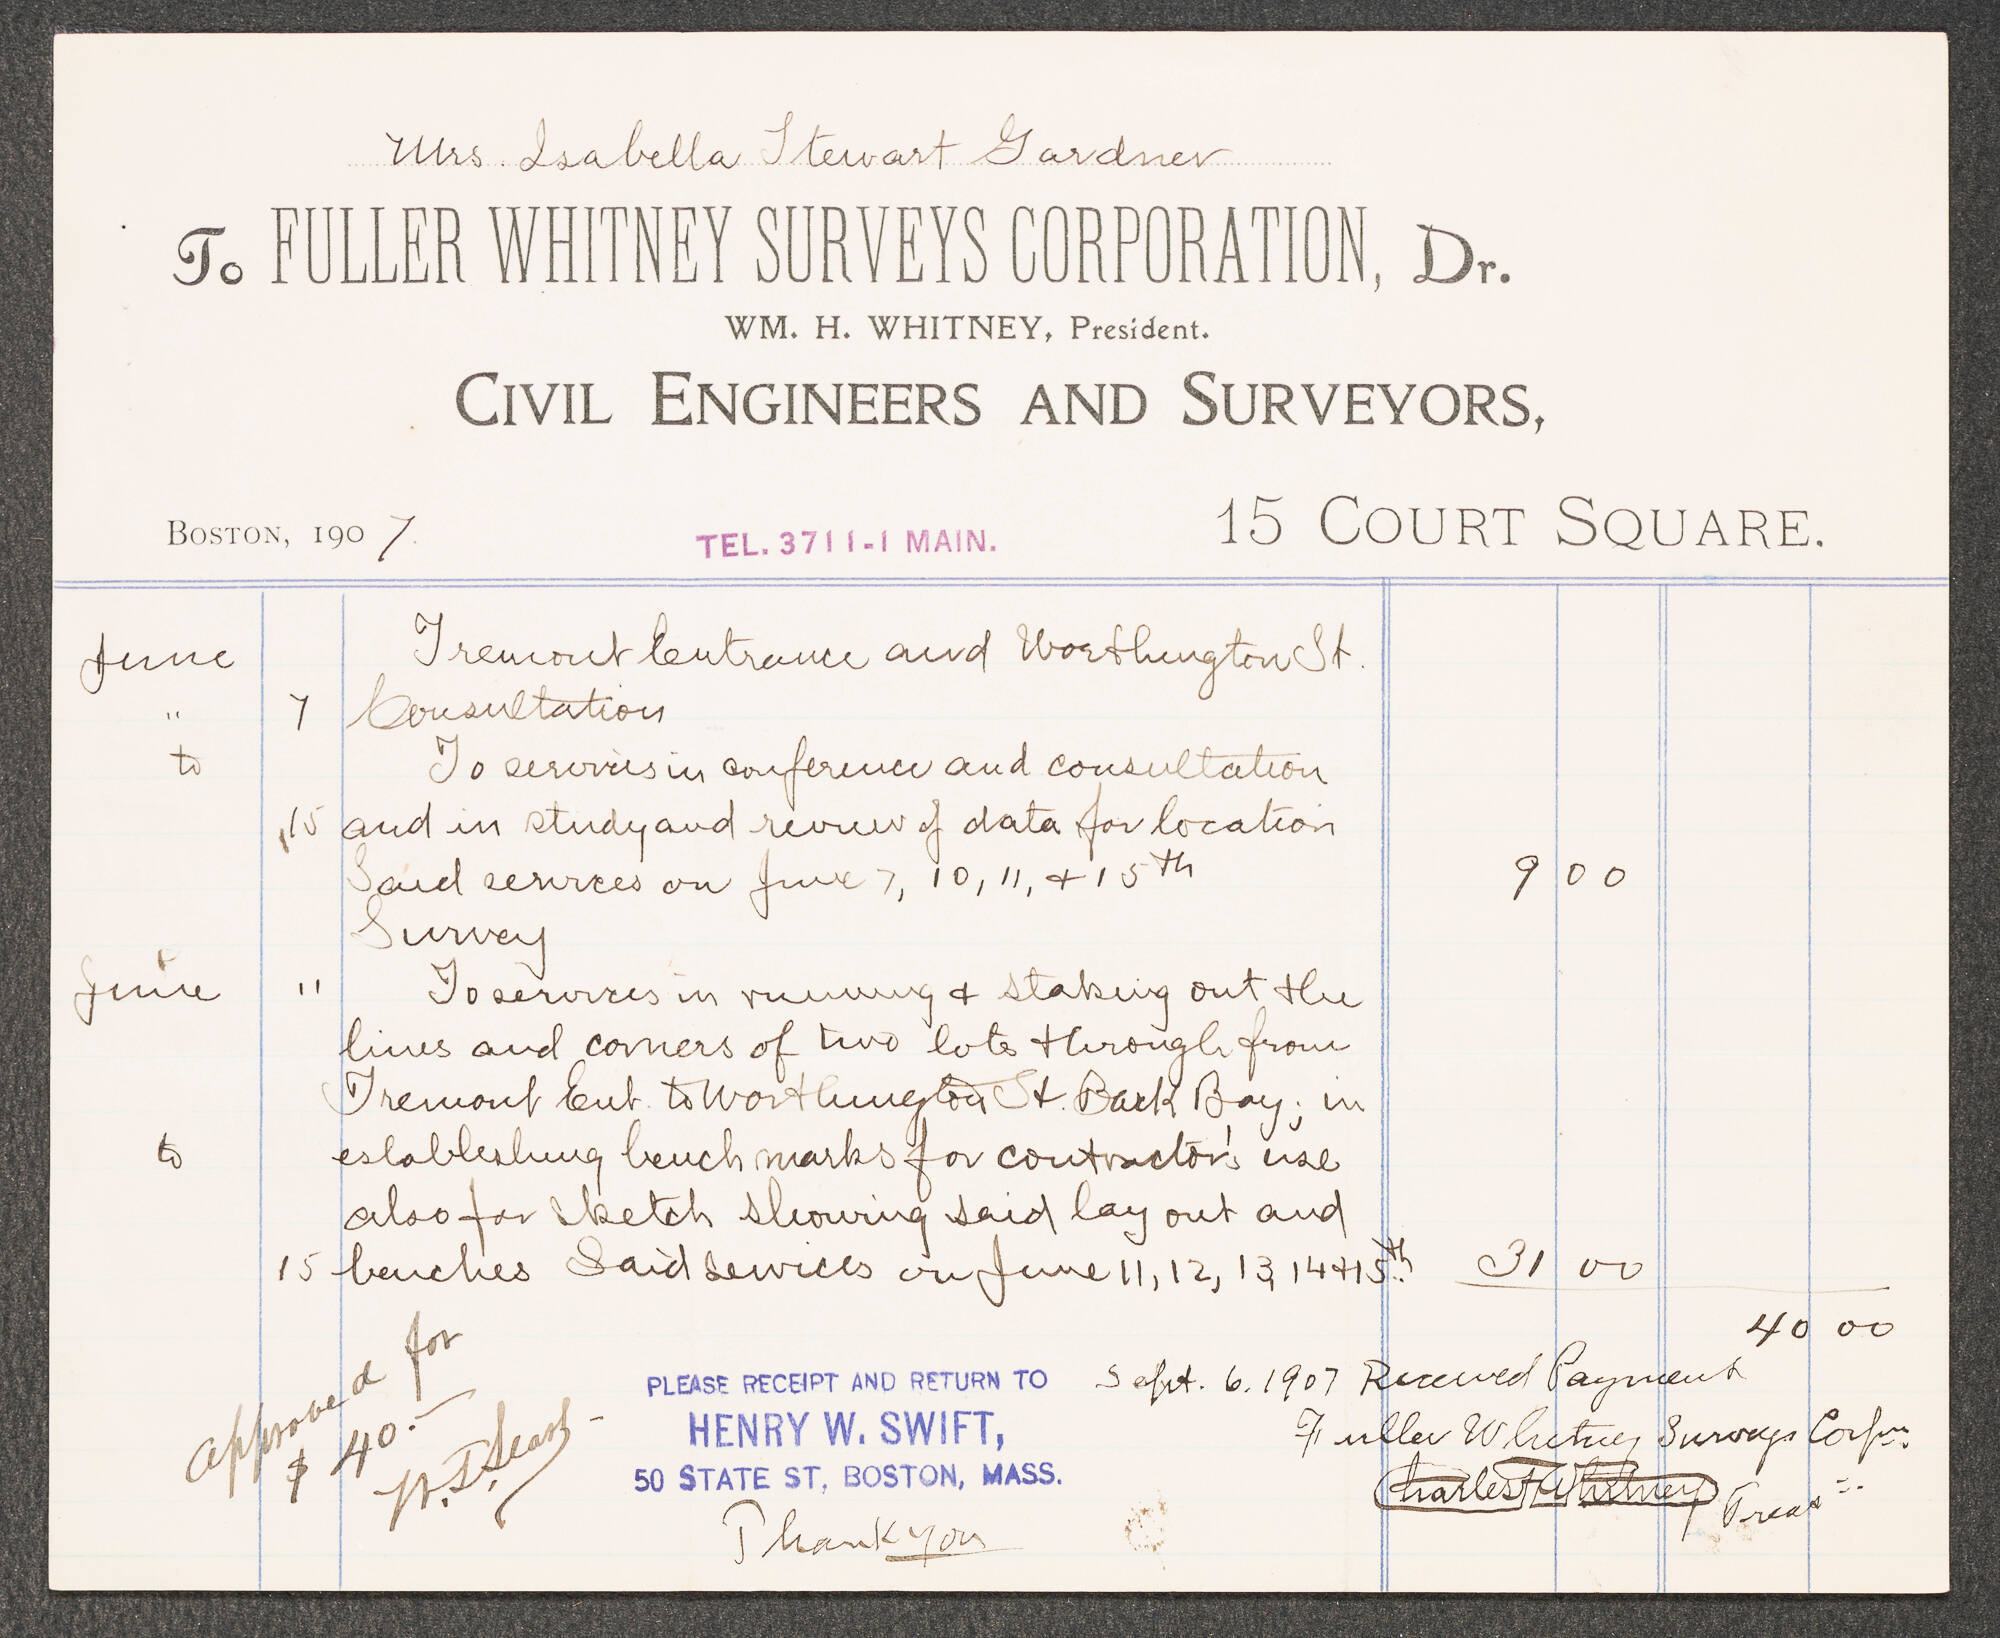 Mrs. Isabella Stewart Gardner
To FULLER WHITNEY SURVEYS CORPORATION, Dr.
WM. H. WHITNEY, President.
CIVIL ENGINEERS AND SURVEYORS,
BOSTON, 1907. TEL. 3711-1 MAIN. 15 COURT SQUARE.
June Tremont Entrance and Worthington St.
" 7 Consultation
to To services in conference and consultation
15 and in study and review of data for location
Said services on June 7, 10, 11, & 15th 9 00
Survey
June 11 To services in running & staking out the
lines and corners of two lots through from
Tremont Ent. to Worthington St. Back Bay; in
to establishing bench marks for contractor's use
also for sketch showing said lay out and
15 benches Said services on June 11, 12, 13, 14 & 15th. 31 00
40 00
approved for
$ 40.-
W. T. Sears -
PLEASE RECEIPT AND RETURN TO
HENRY W. SWIFT,
50 STATE ST, BOSTON, MASS.
Thank you
Sept. 6. 1907 Received Payment
Fuller Whitney Surveys Corpn.
Charles F Whitney Treas